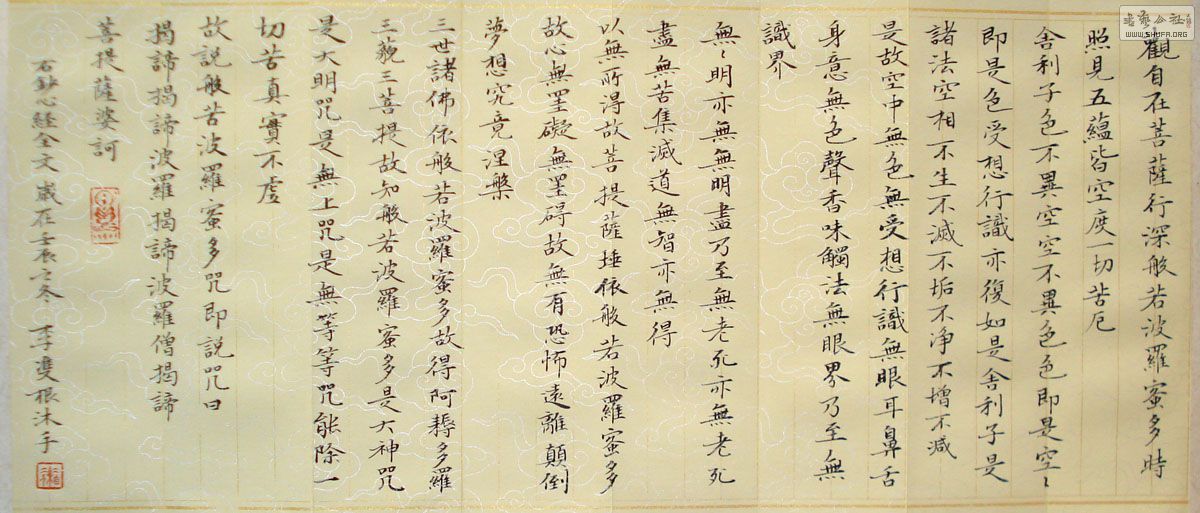 觀自在菩薩行深般若波羅蜜多時
照見五蘊皆空度一切苦厄
舍利子色不異空空不異色色即是空〻
即是色受想行識亦復如是舍利子是
諸法空相不生不滅不垢不净不增不減
是故空中無色無受想行識無眼耳鼻舌
身意無色聲香味觸法無眼界乃至無
識界
無〻明亦無無明盡乃至無老死亦無老死
盡無苦集滅道無智亦無得
以無所得故菩提薩埵依般若波羅蜜多
故心無罣礙無罣碍故無有恐怖遠離顛倒
夢想究竟涅槃
三世諸佛依般若波羅蜜多故得阿耨多羅
三藐三菩提故知般若波羅蜜多是大神咒
是大明咒是無上咒是無等等咒能除一
切苦真實不虛
故説般若波羅蜜多咒即説咒曰
揭諦揭諦波羅揭諦波羅僧揭諦
菩提薩婆訶
右鈔心經全文歲在壬辰之冬 李雙根沐手
WWW.SHUFA.ORG